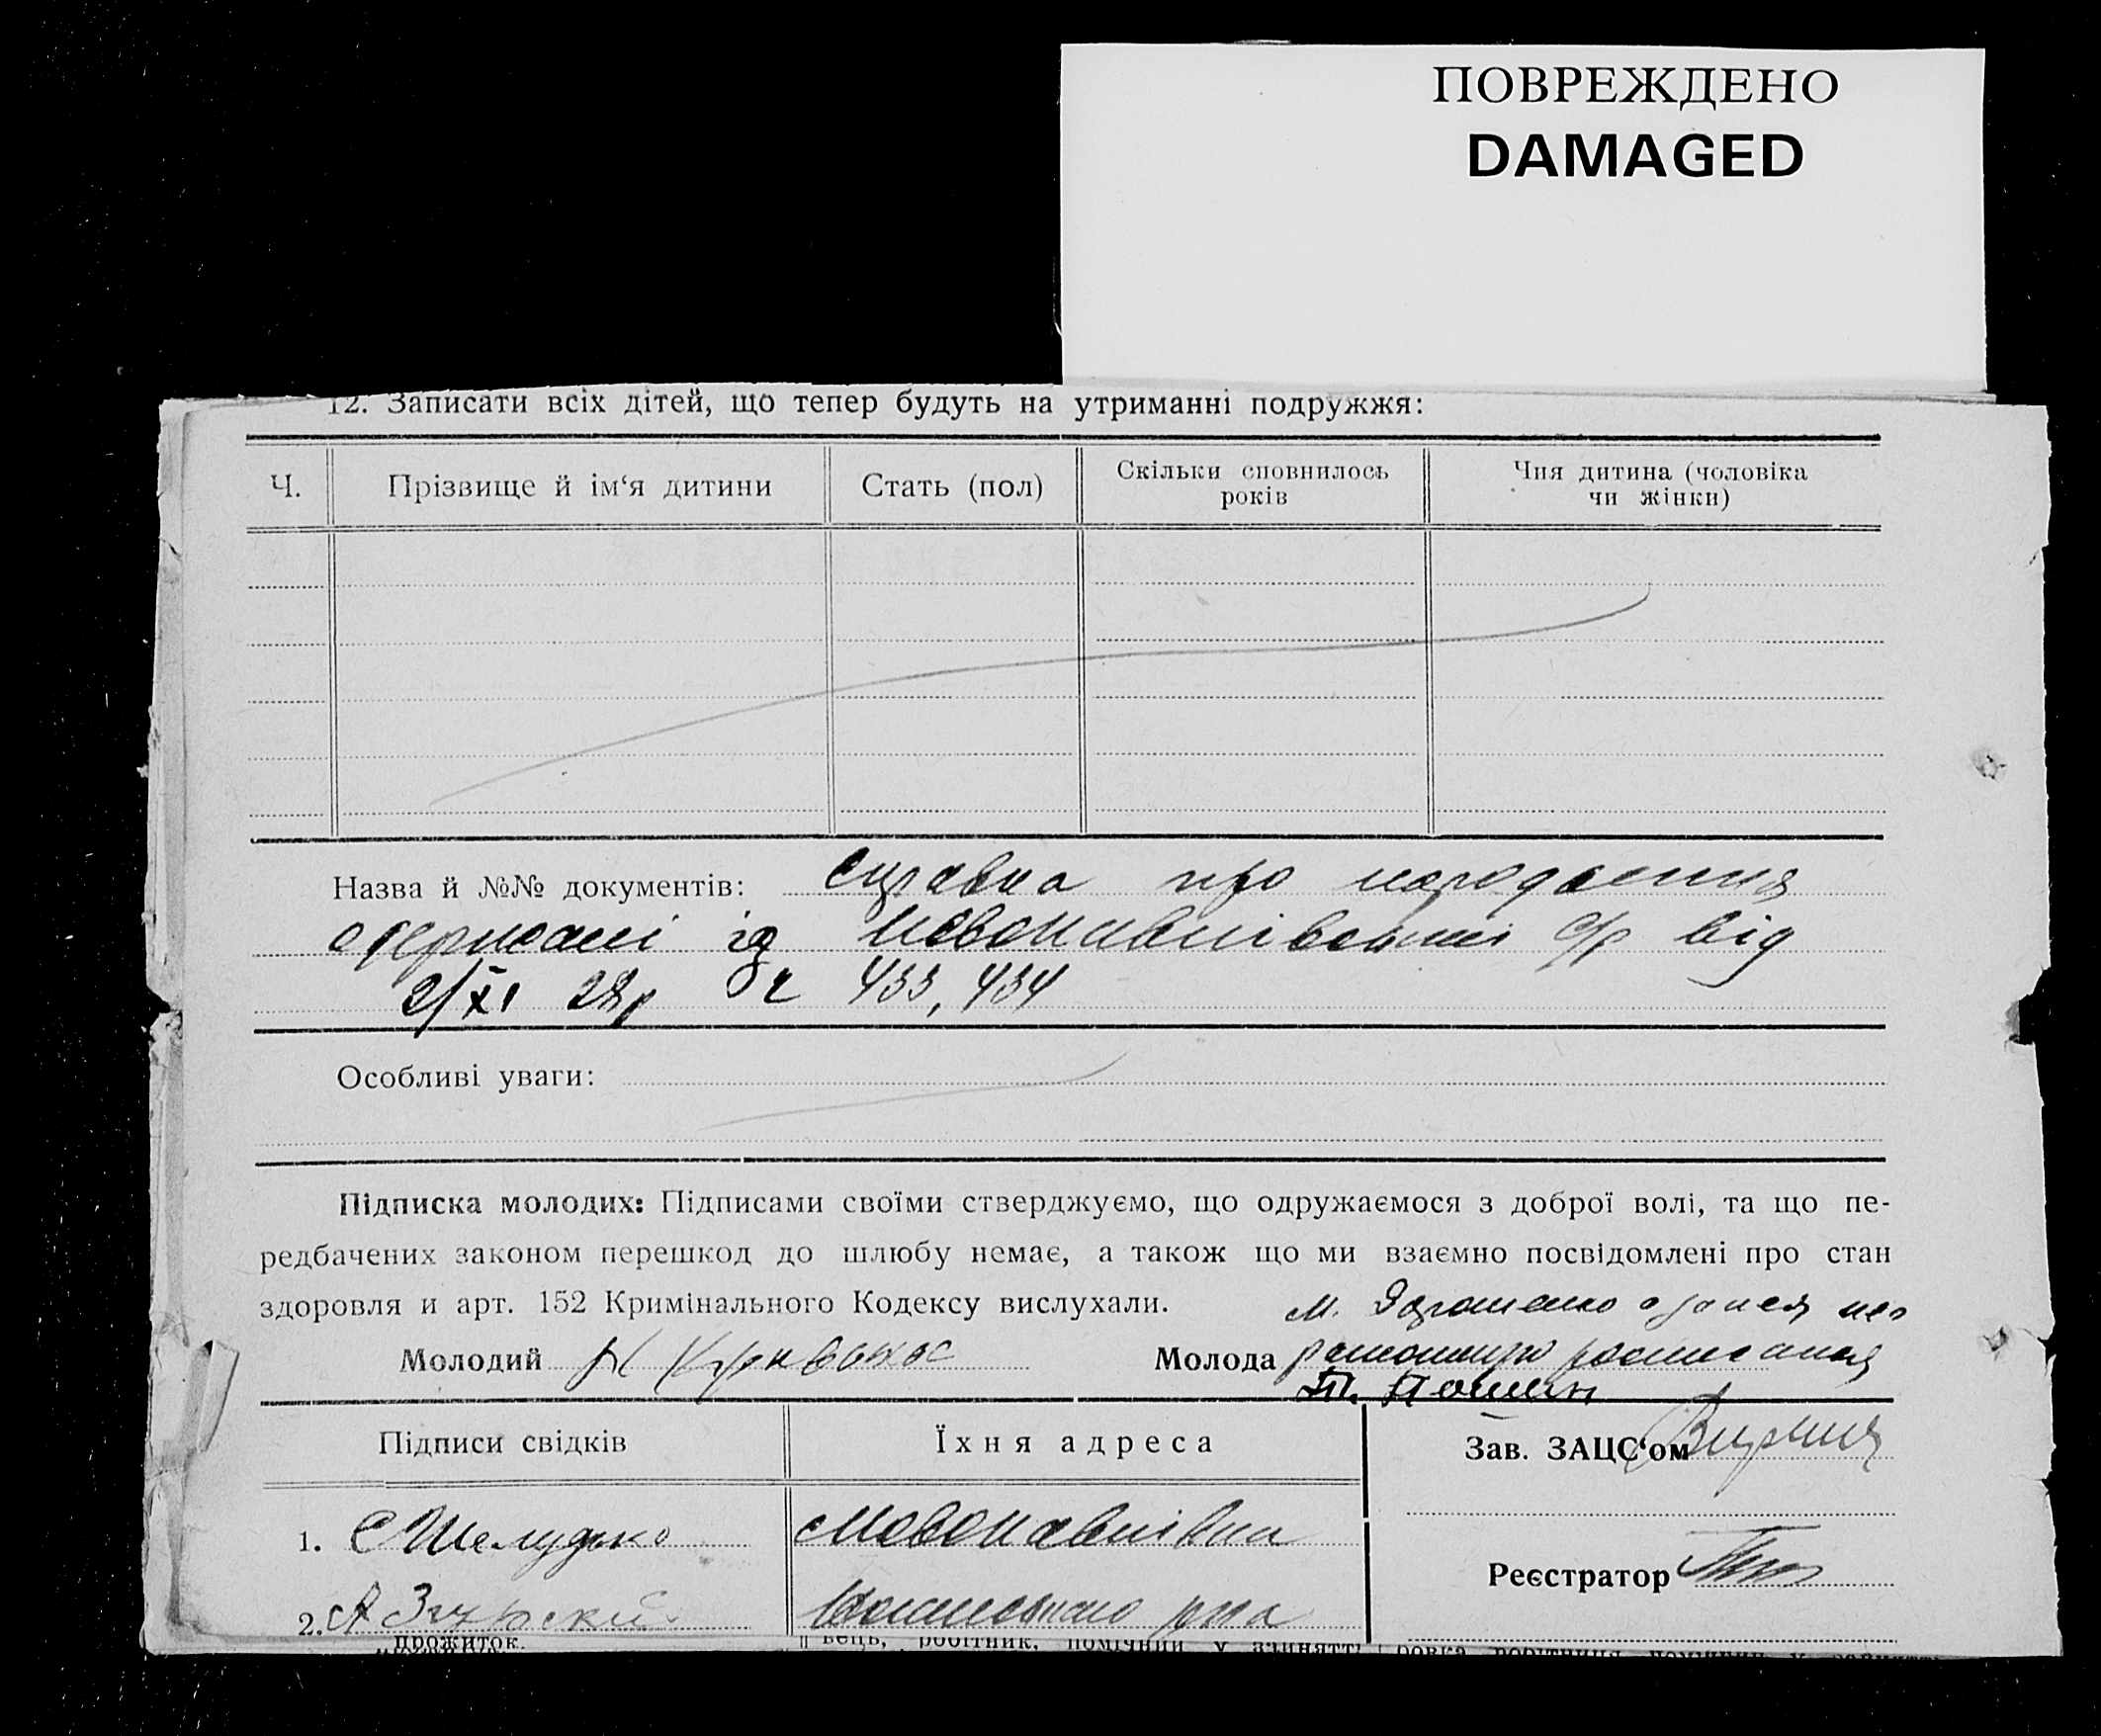 ПОВРЕЖДЕНО
DAMAGED
12. Записати всіх дітей, що тепер будуть на утриманні подружжя:
Ч. Прізвище й ім‘я дитини Стать (пол) Скільки сповнилось років Чия дитина (чоловіка чи жінки)
Назва й №№ документів: Справка про народження
одержані із Новопавлівської с/р від
2/XI 28р 433, 434
Особливі уваги:
Підписка молодих: Підписами своїми стверджуємо, що одружаємося з доброї волі, та що пе-
редбачених законом перешкод до шлюбу немає, а також що ми взаємно посвідомлені про стан
здоровля и арт. 152 Кримінального Кодексу вислухали.
Молодий Кривонос
Молода
Підписи свідків Їхня адреса Зав. ЗАЦС‘ом
1. С Шелудько Новопавлівка
Реєстратор
2. А рна
„прожиток.
вець, робітник, помічний у занятті